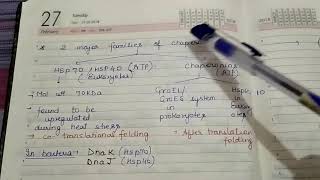 27 Tuesday
February
* 2 major families of chape
HSP70 / HSP40 (ATP) Chaperonins
(Eukaryotes) (ATP)
→ Mol wt 70KDa GroEL/ HSP60, 10
→ found to be GroES system in
upregulated in Eukary
during heat stress prokaryotes
→ co-translational folding → After translation
folding
In bacteria → DnaK (HSP70)
DnaJ (HSP40)